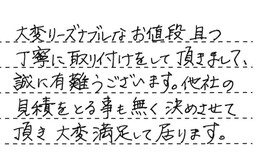 大変リーズナブルなお値段且つ
丁寧に取り付けをして頂きまして、
誠に有難うございます。他社の
見積をとる事も無く決めさせて
頂き大変満足して居ります。